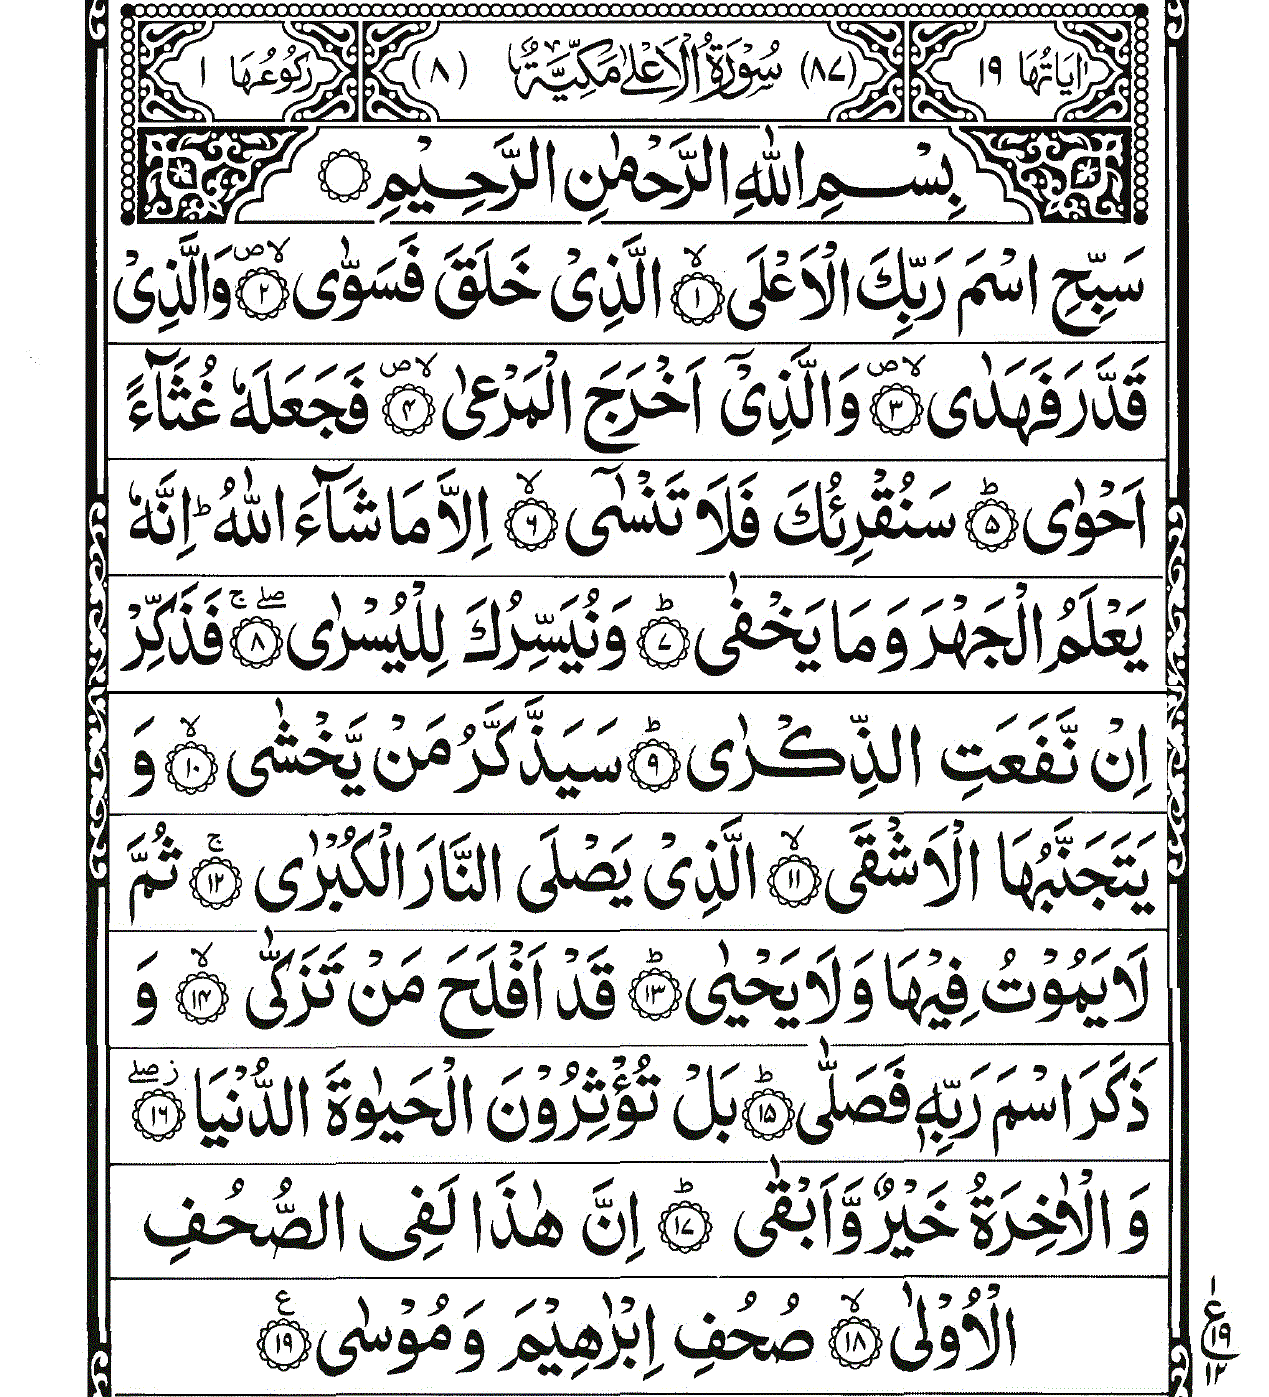 اٰيَاتُهَا ١٩ (٨٧) سُوْرَةُ الْاَعْلٰى مَكِّيَّةٌ (٨) رُكُوْعُهَا ١
بِسْمِ اللّٰهِ الرَّحْمٰنِ الرَّحِيْمِ
سَبِّحِ اسْمَ رَبِّكَ الْاَعْلَى ۙ﴿١﴾ الَّذِىْ خَلَقَ فَسَوّٰى ۙ ص﴿٢﴾ وَالَّذِىْ
قَدَّرَ فَهَدٰى ۙ ص﴿٣﴾ وَالَّذِىْۤ اَخْرَجَ الْمَرْعٰى ۙ ص﴿٤﴾ فَجَعَلَهٗ غُثَآءً
اَحْوٰى ؕ﴿٥﴾ سَنُقْرِئُكَ فَلَا تَنْسٰٓى ۙ﴿٦﴾ اِلَّا مَا شَآءَ اللّٰهُ ؕ اِنَّهٗ
يَعْلَمُ الْجَهْرَ وَمَا يَخْفٰى ؕ﴿٧﴾ وَنُيَسِّرُكَ لِلْيُسْرٰى ۖ ۚ﴿٨﴾ فَذَكِّرْ
اِنْ نَّفَعَتِ الذِّكْرٰى ؕ﴿٩﴾ سَيَذَّكَّرُ مَنْ يَّخْشٰى ۙ﴿١٠﴾ وَ
يَتَجَنَّبُهَا الْاَشْقَى ۙ﴿١١﴾ الَّذِىْ يَصْلَى النَّارَ الْكُبْرٰى ۚ﴿١٢﴾ ثُمَّ
لَا يَمُوْتُ فِيْهَا وَلَا يَحْيٰى ؕ﴿١٣﴾ قَدْ اَفْلَحَ مَنْ تَزَكّٰى ۙ﴿١٤﴾ وَ
ذَكَرَ اسْمَ رَبِّهٖ فَصَلّٰى ؕ﴿١٥﴾ بَلْ تُؤْثِرُوْنَ الْحَيٰوةَ الدُّنْيَا ز ۖ﴿١٦﴾
وَالْاٰخِرَةُ خَيْرٌ وَّاَبْقٰى ؕ﴿١٧﴾ اِنَّ هٰذَا لَفِى الصُّحُفِ
الْاُوْلٰى ۙ﴿١٨﴾ صُحُفِ اِبْرٰهِيْمَ وَمُوْسٰى ع﴿١٩﴾
١
ع ١٩
١٢